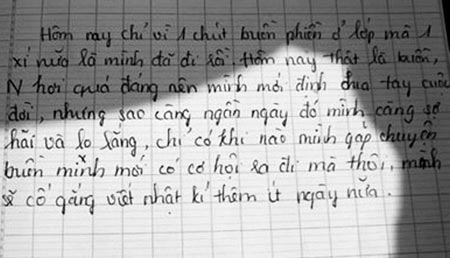 Hôm nay chỉ vì 1 chút buồn phiền ở lớp mà 1
xí nữa là mình đã đi rồi. Hôm nay thật là buồn,
N hơi quá đáng nên mình mới định chia tay cuộc
đời, nhưng sao càng ngần ngày đó mình càng sợ
hãi và lo lắng, chỉ có khi nào mình gặp chuyện
buồn mình mới có cơ hội ra đi mà thôi, mình
sẽ cố gắng viết nhật kí thêm ít ngày nữa.